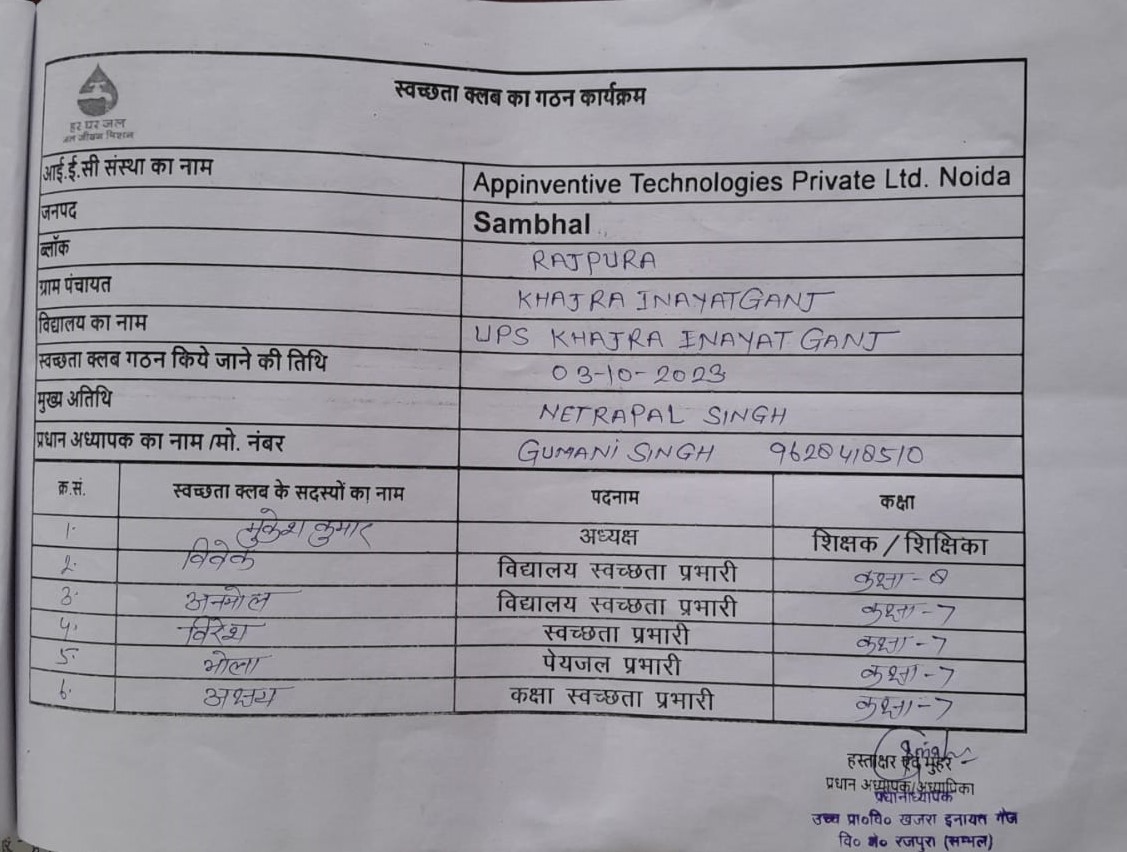 स्वच्छता क्लब का गठन कार्यक्रम
हर घर जल
जल जीवन मिशन
आई.ई.सी संस्था का नाम Appinventive Technologies Private Ltd. Noida
जनपद Sambhal
ब्लॉक RAJPURA
ग्राम पंचायत KHAJRA INAYATGANJ
विद्यालय का नाम UPS KHAJRA INAYAT GANJ
स्वच्छता क्लब गठन किये जाने की तिथि 03-10-2023
मुख्य अतिथि NETRAPAL SINGH
प्रधान अध्यापक का नाम /मो. नंबर GUMANI SINGH 9628418510
क्र.सं. स्वच्छता क्लब के सदस्यों का नाम पदनाम कक्षा
1. मुकेश कुमार अध्यक्ष शिक्षक / शिक्षिका
2. विवेक विद्यालय स्वच्छता प्रभारी कक्षा - 8
3. अनमोल विद्यालय स्वच्छता प्रभारी कक्षा - 7
4. विरेश स्वच्छता प्रभारी कक्षा - 7
5. भोला पेयजल प्रभारी कक्षा - 7
6. अक्षय कक्षा स्वच्छता प्रभारी कक्षा - 7
हस्ताक्षर एवं मुहर
प्रधान अध्यापक/अध्यापिका
प्रधानाध्यापक
उच्च प्रा०वि० खजरा इनायत गंज
वि० क्षे० रजपुरा (सम्भल)